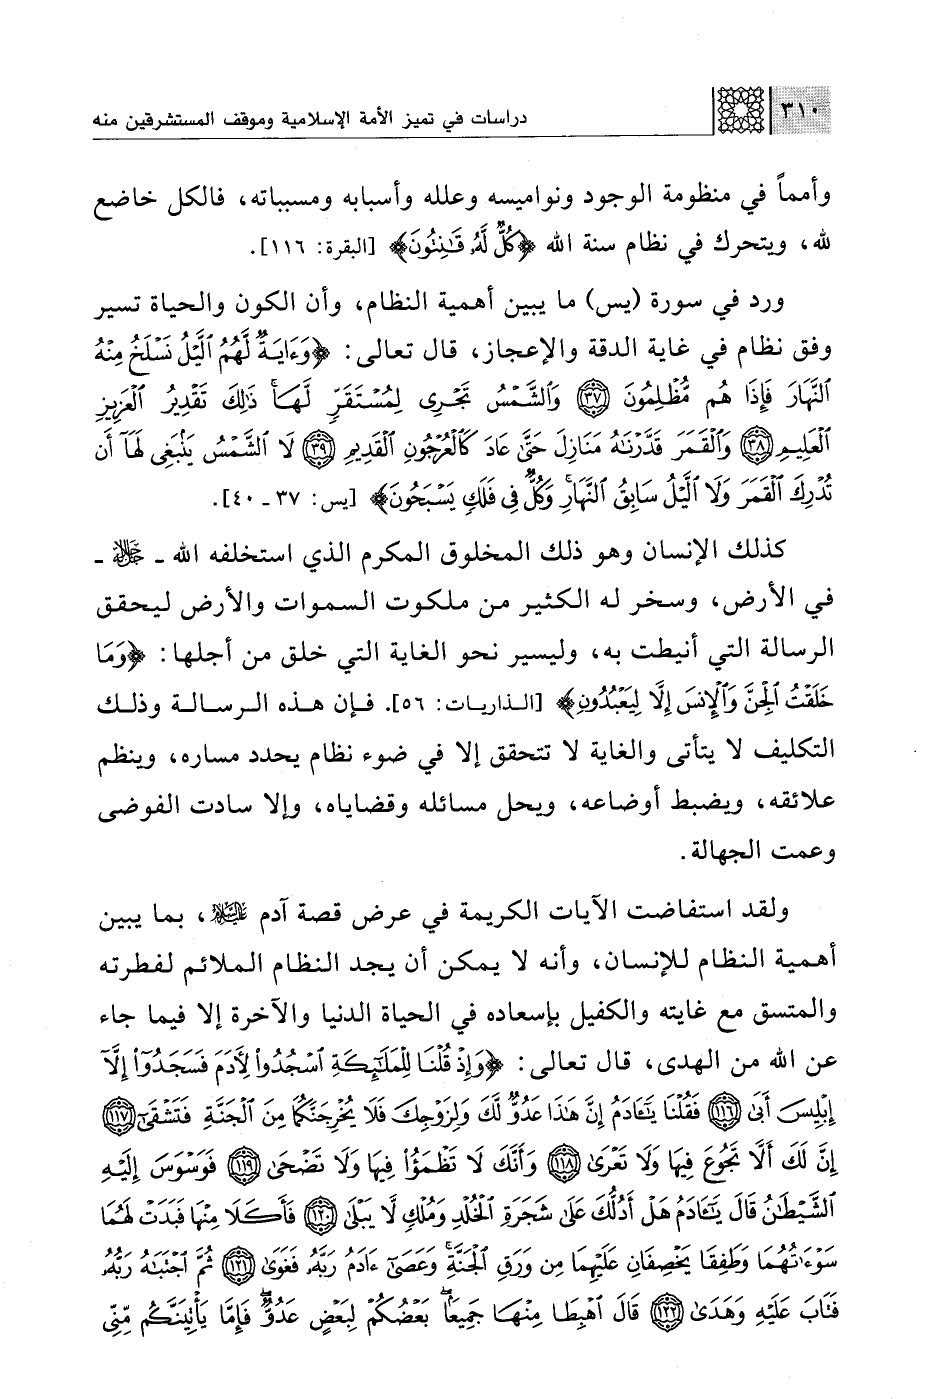 ٣١٠
دراسات في تميز الأمة الإسلامية وموقف المستشرقين منه
وأمماً في منظومة الوجود ونواميسه وعلله وأسبابه ومسبباته، فالكل خاضع
لله، ويتحرك في نظام سنة الله ﴿كُلٌّ لَّهُۥ قَـٰنِتُونَ﴾ [البقرة: ١١٦].
ورد في سورة (يس) ما يبين أهمية النظام، وأن الكون والحياة تسير
وفق نظام في غاية الدقة والإعجاز، قال تعالى: ﴿وَءَايَةٌ لَّهُمُ ٱلَّيْلُ نَسْلَخُ مِنْهُ
ٱلنَّهَارَ فَإِذَا هُم مُّظْلِمُونَ ٣٧ وَٱلشَّمْسُ تَجْرِى لِمُسْتَقَرٍّ لَّهَا ۚ ذَٰلِكَ تَقْدِيرُ ٱلْعَزِيزِ
ٱلْعَلِيمِ ٣٨ وَٱلْقَمَرَ قَدَّرْنَـٰهُ مَنَازِلَ حَتَّىٰ عَادَ كَٱلْعُرْجُونِ ٱلْقَدِيمِ ٣٩ لَا ٱلشَّمْسُ يَنۢبَغِى لَهَآ أَن
تُدْرِكَ ٱلْقَمَرَ وَلَا ٱلَّيْلُ سَابِقُ ٱلنَّهَارِ ۚ وَكُلٌّ فِى فَلَكٍ يَسْبَحُونَ﴾ [يس: ٣٧ - ٤٠].
كذلك الإنسان وهو ذلك المخلوق المكرم الذي استخلفه الله - ﷻ -
في الأرض، وسخر له الكثير من ملكوت السموات والأرض ليحقق
الرسالة التي أنيطت به، وليسير نحو الغاية التي خلق من أجلها: ﴿وَمَا
خَلَقْتُ ٱلْجِنَّ وَٱلْإِنسَ إِلَّا لِيَعْبُدُونِ﴾ [الذاريات: ٥٦]. فإن هذه الرسالة وذلك
التكليف لا يتأتى والغاية لا تتحقق إلا في ضوء نظام يحدد مساره، وينظم
علائقه، ويضبط أوضاعه، ويحل مسائله وقضاياه، وإلا سادت الفوضى
وعمت الجهالة.
ولقد استفاضت الآيات الكريمة في عرض قصة آدم عليه السلام، بما يبين
أهمية النظام للإنسان، وأنه لا يمكن أن يجد النظام الملائم لفطرته
والمتسق مع غايته والكفيل بإسعاده في الحياة الدنيا والآخرة إلا فيما جاء
عن الله من الهدى، قال تعالى: ﴿وَإِذْ قُلْنَا لِلْمَلَـٰٓئِكَةِ ٱسْجُدُوا۟ لِـَٔادَمَ فَسَجَدُوٓا۟ إِلَّآ
إِبْلِيسَ أَبَىٰ ١١٦ فَقُلْنَا يَـٰٓـَٔادَمُ إِنَّ هَـٰذَا عَدُوٌّ لَّكَ وَلِزَوْجِكَ فَلَا يُخْرِجَنَّكُمَا مِنَ ٱلْجَنَّةِ فَتَشْقَىٰٓ ١١٧
إِنَّ لَكَ أَلَّا تَجُوعَ فِيهَا وَلَا تَعْرَىٰ ١١٨ وَأَنَّكَ لَا تَظْمَؤُا۟ فِيهَا وَلَا تَضْحَىٰ ١١٩ فَوَسْوَسَ إِلَيْهِ
ٱلشَّيْطَـٰنُ قَالَ يَـٰٓـَٔادَمُ هَلْ أَدُلُّكَ عَلَىٰ شَجَرَةِ ٱلْخُلْدِ وَمُلْكٍ لَّا يَبْلَىٰ ١٢٠ فَأَكَلَا مِنْهَا فَبَدَتْ لَهُمَا
سَوْءَٰتُهُمَا وَطَفِقَا يَخْصِفَانِ عَلَيْهِمَا مِن وَرَقِ ٱلْجَنَّةِ ۚ وَعَصَىٰٓ ءَادَمُ رَبَّهُۥ فَغَوَىٰ ١٢١ ثُمَّ ٱجْتَبَـٰهُ رَبُّهُۥ
فَتَابَ عَلَيْهِ وَهَدَىٰ ١٢٢ قَالَ ٱهْبِطَا مِنْهَا جَمِيعًۢا ۖ بَعْضُكُمْ لِبَعْضٍ عَدُوٌّ ۖ فَإِمَّا يَأْتِيَنَّكُم مِّنِّى